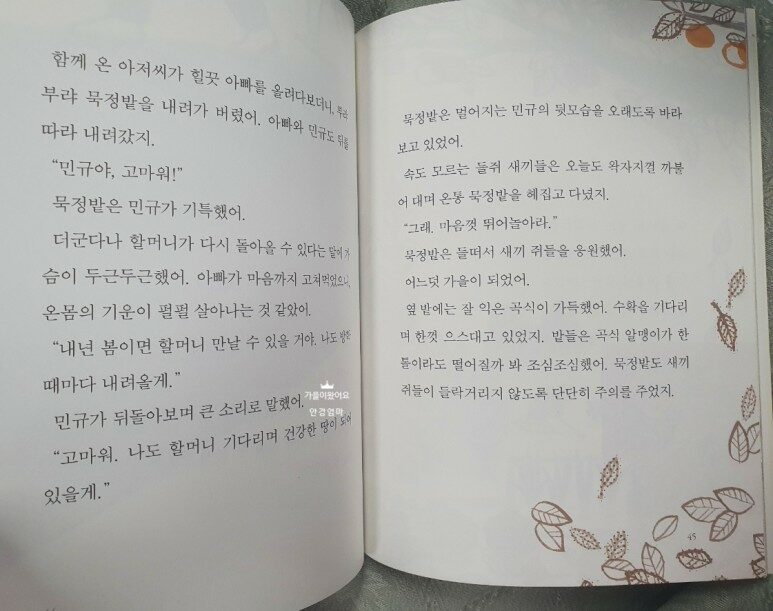 함께 온 아저씨가 힐끗 아빠를 올려다보더니, 부랴
부랴 묵정밭을 내려가 버렸어. 아빠와 민규도 뒤를
따라 내려갔지.
“민규야, 고마워!”
묵정밭은 민규가 기특했어.
더군다나 할머니가 다시 돌아올 수 있다는 말에 가
슴이 두근두근했어. 아빠가 마음까지 고쳐먹었으니,
온몸의 기운이 펄펄 살아나는 것 같았어.
“내년 봄이면 할머니 만날 수 있을 거야. 나도 방학
때마다 내려올게.”
민규가 뒤돌아보며 큰 소리로 말했어.
“고마워. 나도 할머니 기다리며 건강한 땅이 되어
있을게.”
가을이왔어요
안경엄마
묵정밭은 멀어지는 민규의 뒷모습을 오래도록 바라
보고 있었어.
속도 모르는 들쥐 새끼들은 오늘도 왁자지껄 까불
어 대며 온통 묵정밭을 헤집고 다녔지.
“그래. 마음껏 뛰어놀아라.”
묵정밭은 들떠서 새끼 쥐들을 응원했어.
어느덧 가을이 되었어.
옆 밭에는 잘 익은 곡식이 가득했어. 수확을 기다리
며 한껏 으스대고 있었지. 밭들은 곡식 알맹이가 한
톨이라도 떨어질까 봐 조심조심했어. 묵정밭도 새끼
쥐들이 들락거리지 않도록 단단히 주의를 주었지.
45